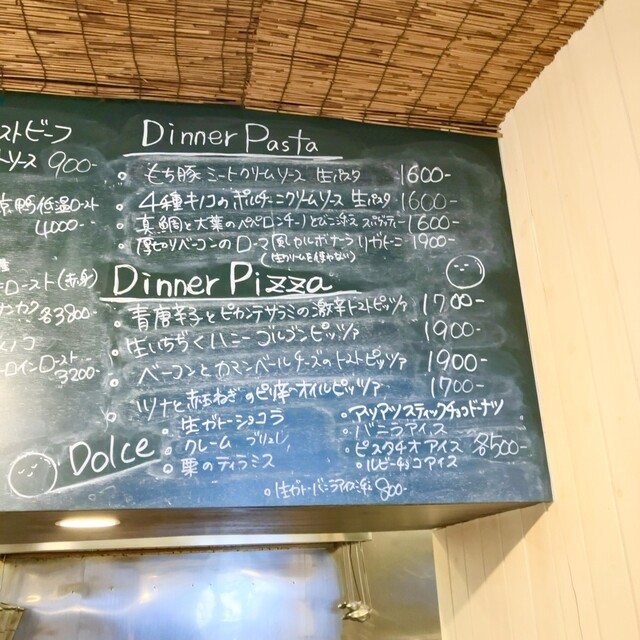 ストビーフ
トソース 900-
鴨低温ロースト
4000-
ロースト(赤身)
各3800-
ロインロースト
3200-
Dinner Pasta
もち豚ミートクリームソース 生パスタ 1600-
4種キノコのポルチーニクリームソース 生パスタ 1600-
真鯛と大葉のペペロンチーノとびこ添え スパゲッティー 1600-
厚切りベーコンのローマ風カルボナーラ リガトーニ 1900-
(生クリームを使わない)
Dinner Pizza
青唐辛子とピカンテサラミの激辛トマトピッツァ 1700-
生いちぢくハニーゴルゴンピッツァ 1900-
ベーコンとカマンベールチーズのトマトピッツァ 1900-
ツナと赤玉ねぎのピ辛オイルピッツァ 1700-
Dolce
生ガトーショコラ
クレームブリュレ
栗のティラミス
アツアツスティックチョコドーナツ
バニラアイス
ピスタチオアイス 各500-
ルビーチョコアイス
生ガトーバニラアイス添え 800-